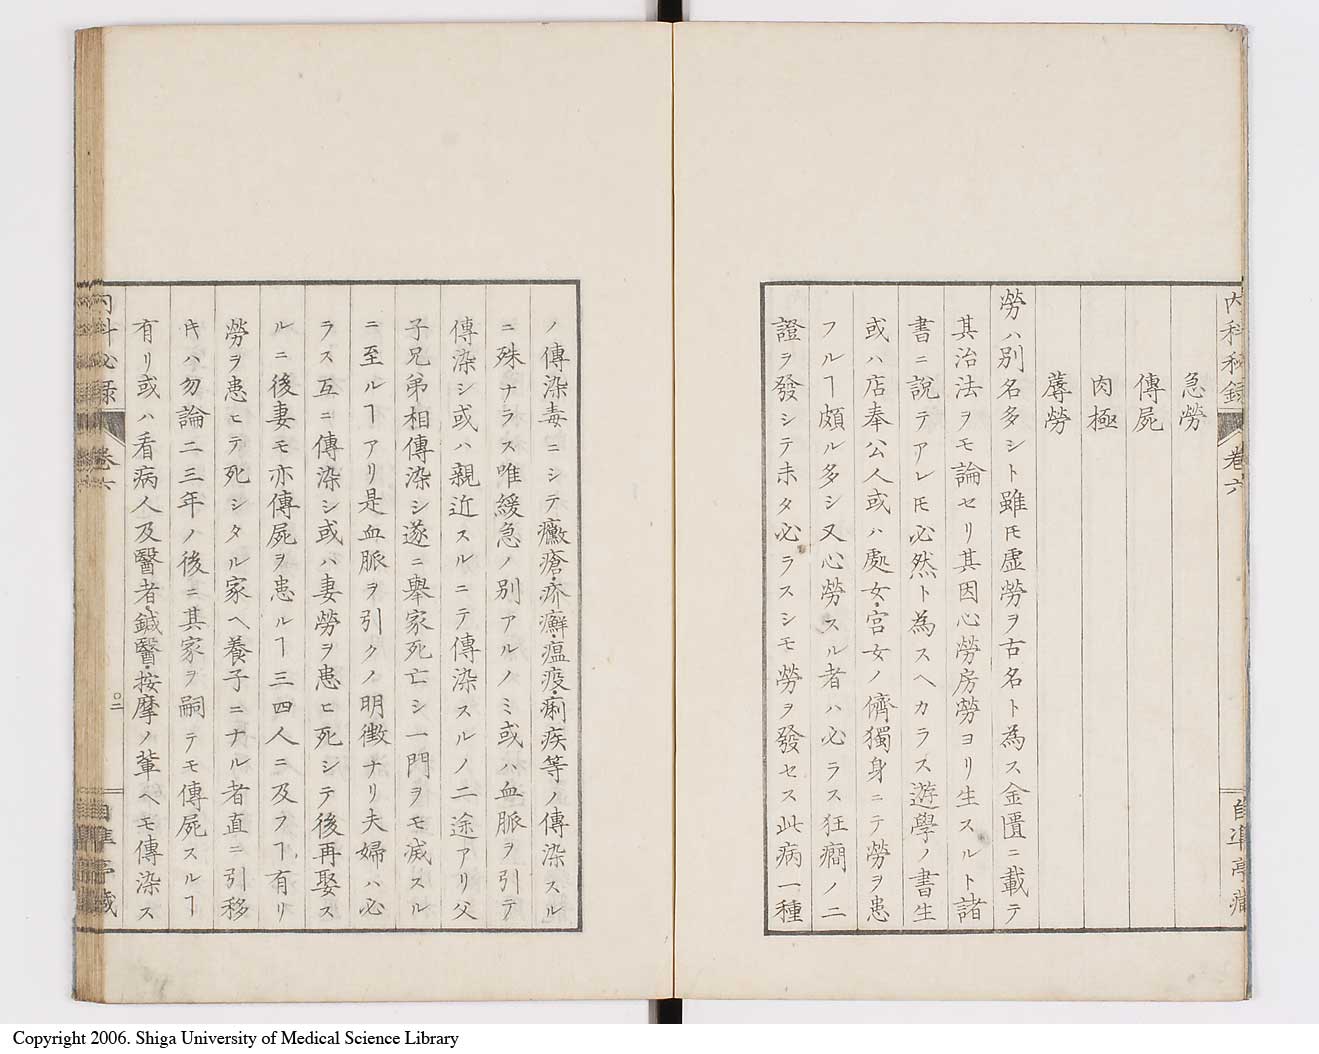 内科秘録 卷六 自準亭藏
急勞
傳屍
肉極
蓐勞
勞ハ別名多シト雖𪜈虚勞ヲ古名ト為ス金匱ニ載テ
其治法ヲモ論セリ其因心勞房勞ヨリ生スルト諸
書ニ説テアレ𪜈必然ト為スヘカラス遊學ノ書生
或ハ店奉公人或ハ處女・宮女ノ儕獨身ニテ勞ヲ患
フルヿ頗ル多シ又心勞スル者ハ必ラス狂癇ノ二
證ヲ發シテ未タ必ラスシモ勞ヲ發セス此病一種
ノ傳染毒ニシテ黴瘡・疥癬・瘟疫・痢疾等ノ傳染スル
ニ殊ナラス唯緩急ノ別アルノミ或ハ血脈ヲ引テ
傳染シ或ハ親近スルニテ傳染スルノ二途アリ父
子兄弟相傳染シ遂ニ舉家死亡シ一門ヲモ滅スル
ニ至ルヿアリ是血脈ヲ引クノ明徴ナリ夫婦ハ必
ラス互ニ傳染シ或ハ妻勞ヲ患ヒ死シテ後再娶ス
ルニ後妻モ亦傳屍ヲ患ルヿ三四人ニ及フヿ有リ
勞ヲ患ヒテ死シタル家ヘ養子ニナル者直ニ引移
キハ勿論二三年ノ後ニ其家ヲ嗣テモ傳屍スルヿ
有リ或ハ看病人及醫者・鍼醫・按摩ノ輩ヘモ傳染ス
内科秘録 卷六 〇二 自準亭藏
Copyright 2006. Shiga University of Medical Science Library